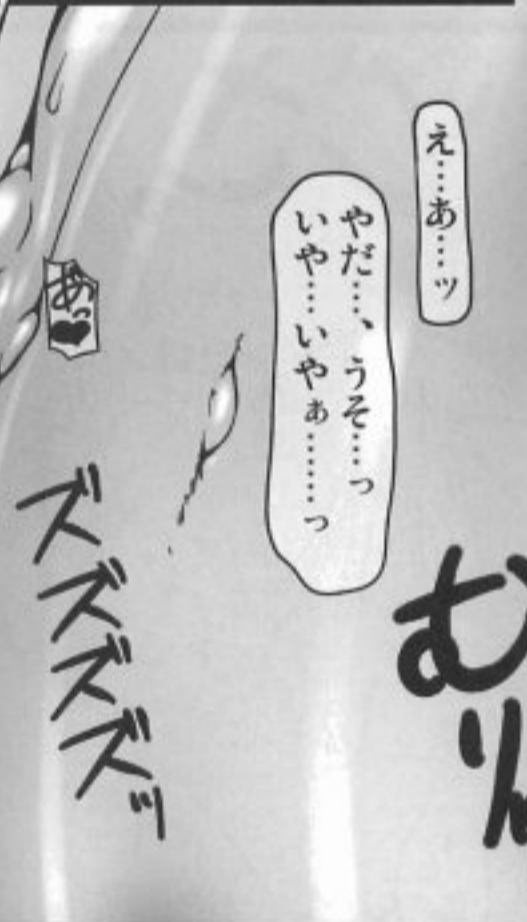 え……あ……ッ
やだ…、うそ…っ
いや…いやぁ………っ
むり
あっ♥
ズズズズッ